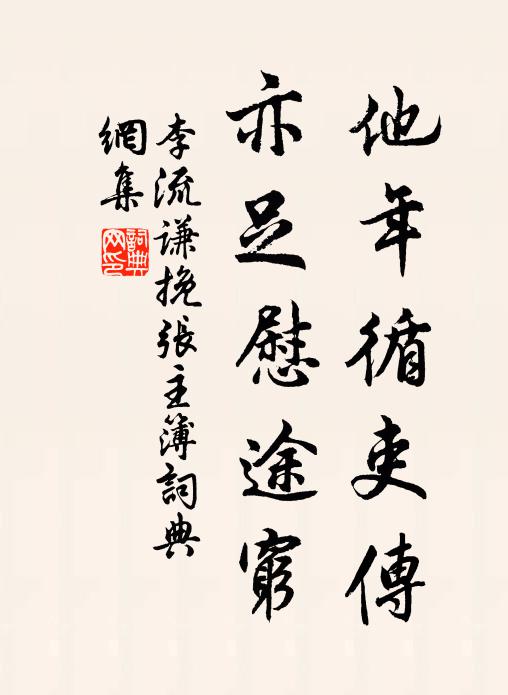 他年循吏傳
亦足慰途窮
李流謙挽張主簿詞典
網集
詞典网印